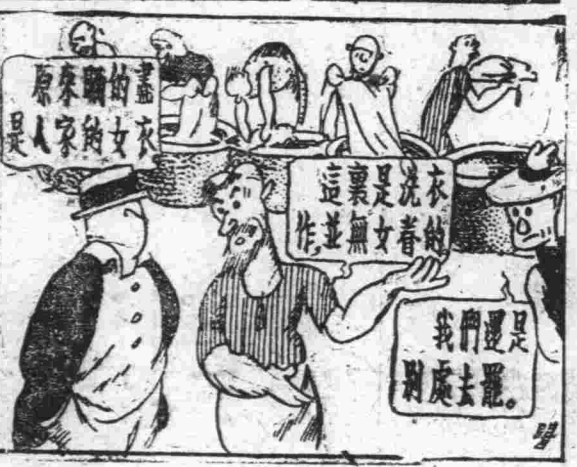 原來晒的盡
是人家的女衣
這裏是洗衣
作,並無女眷的
我們還是
別處去罷。